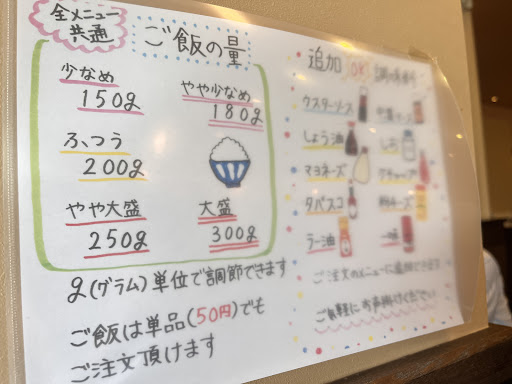 全メニュー
共通
ご飯の量
少なめ
150g
やや少なめ
180g
ふつう
200g
やや大盛
250g
大盛
300g
g(グラム)単位で調節できます
ご飯は単品(50円)でも
ご注文頂けます
追加OK調味料
ウスターソース
しょう油
しお
マヨネーズ
ケチャップ
タバスコ
粉チーズ
ラー油
一味
ご注文のメニューに追加できます
ご気軽にお声掛けください